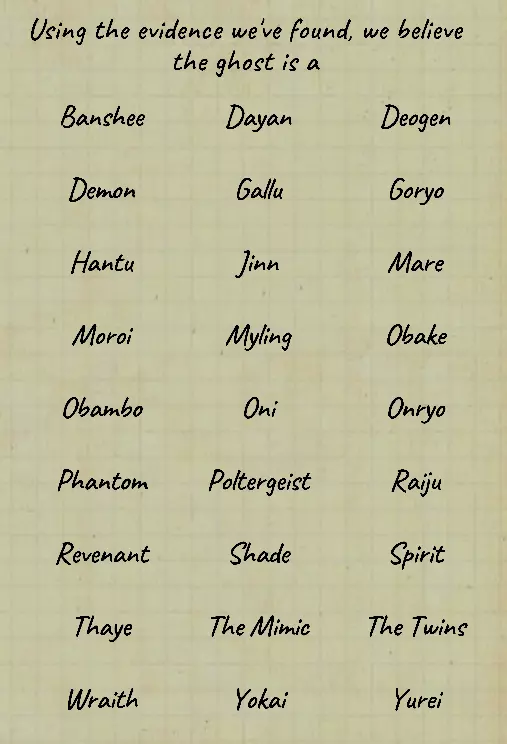 Using the evidence we've found, we believe
the ghost is a
Banshee Dayan Deogen
Demon Gallu Goryo
Hantu Jinn Mare
Moroi Myling Obake
Obambo Oni Onryo
Phantom Poltergeist Raiju
Revenant Shade Spirit
Thaye The Mimic The Twins
Wraith Yokai Yurei